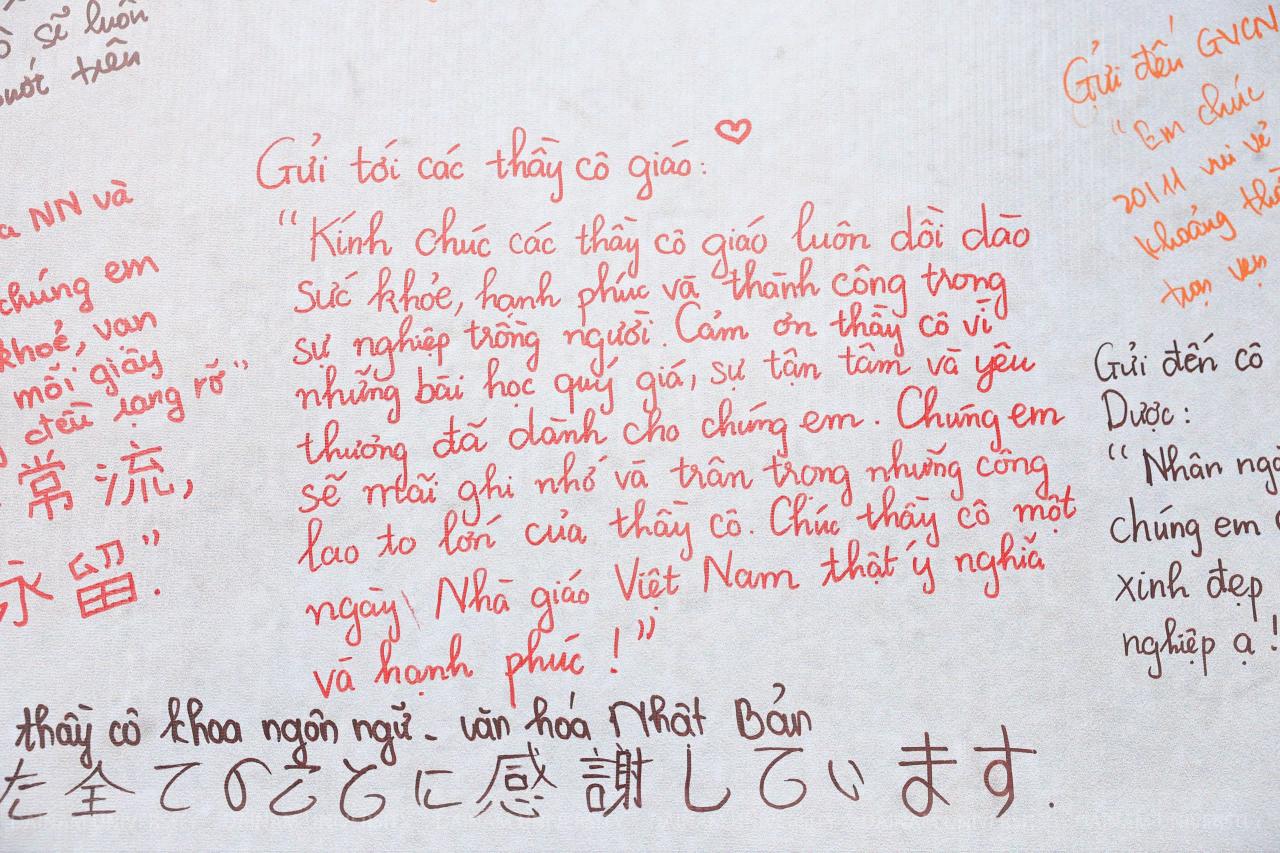 sẽ luôn
trên
Gửi tới các thầy cô giáo:
"Kính chúc các thầy cô giáo luôn dồi dào
sức khỏe, hạnh phúc và thành công trong
sự nghiệp trồng người. Cảm ơn thầy cô vì
những bài học quý giá, sự tận tâm và yêu
thương đã dành cho chúng em. Chúng em
sẽ mãi ghi nhớ và trân trọng những công
lao to lớn của thầy cô. Chúc thầy cô một
ngày Nhà giáo Việt Nam thật ý nghĩa
và hạnh phúc!"
NN và
chúng em
khoẻ, vạn
mỗi giây
đều rạng rỡ"
常流,
永留".
Gửi đến GVCN
"Em chúc
20/11 vui vẻ
khoảng
trọn vẹn
Gửi đến cô
Dược:
"Nhân
chúng em
xinh đẹp
nghiệp ạ!
thầy cô khoa ngôn ngữ - văn hóa Nhật Bản
た全てのことに感謝しています.